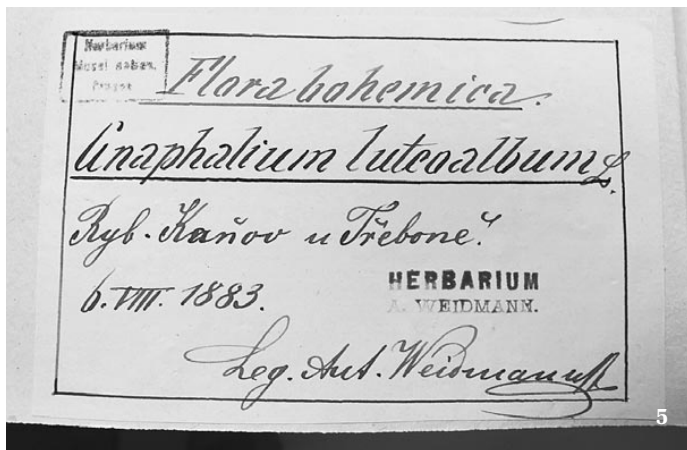 Herbarium
Musei
Pragae
Flora bohemica.
Gnaphalium luteoalbum L.
Ryb. Kaňov u Třeboně.
6. VIII. 1883.
HERBARIUM
A. WEIDMANN.
Leg. Ant. Weidmann
5